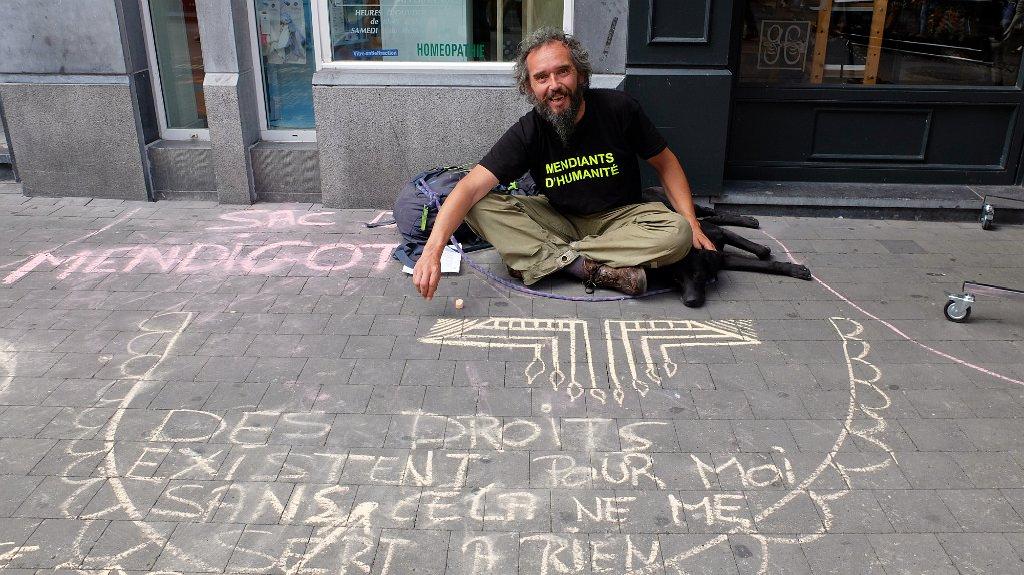 HEURES
de
SAMEDI
HOMEOPATHIE
MENDIANTS
D'HUMANITÉ
SAC
MENDIGOT
DES DROITS
EXISTENT POUR MOI
SANS CELA NE ME
SERT A RIEN